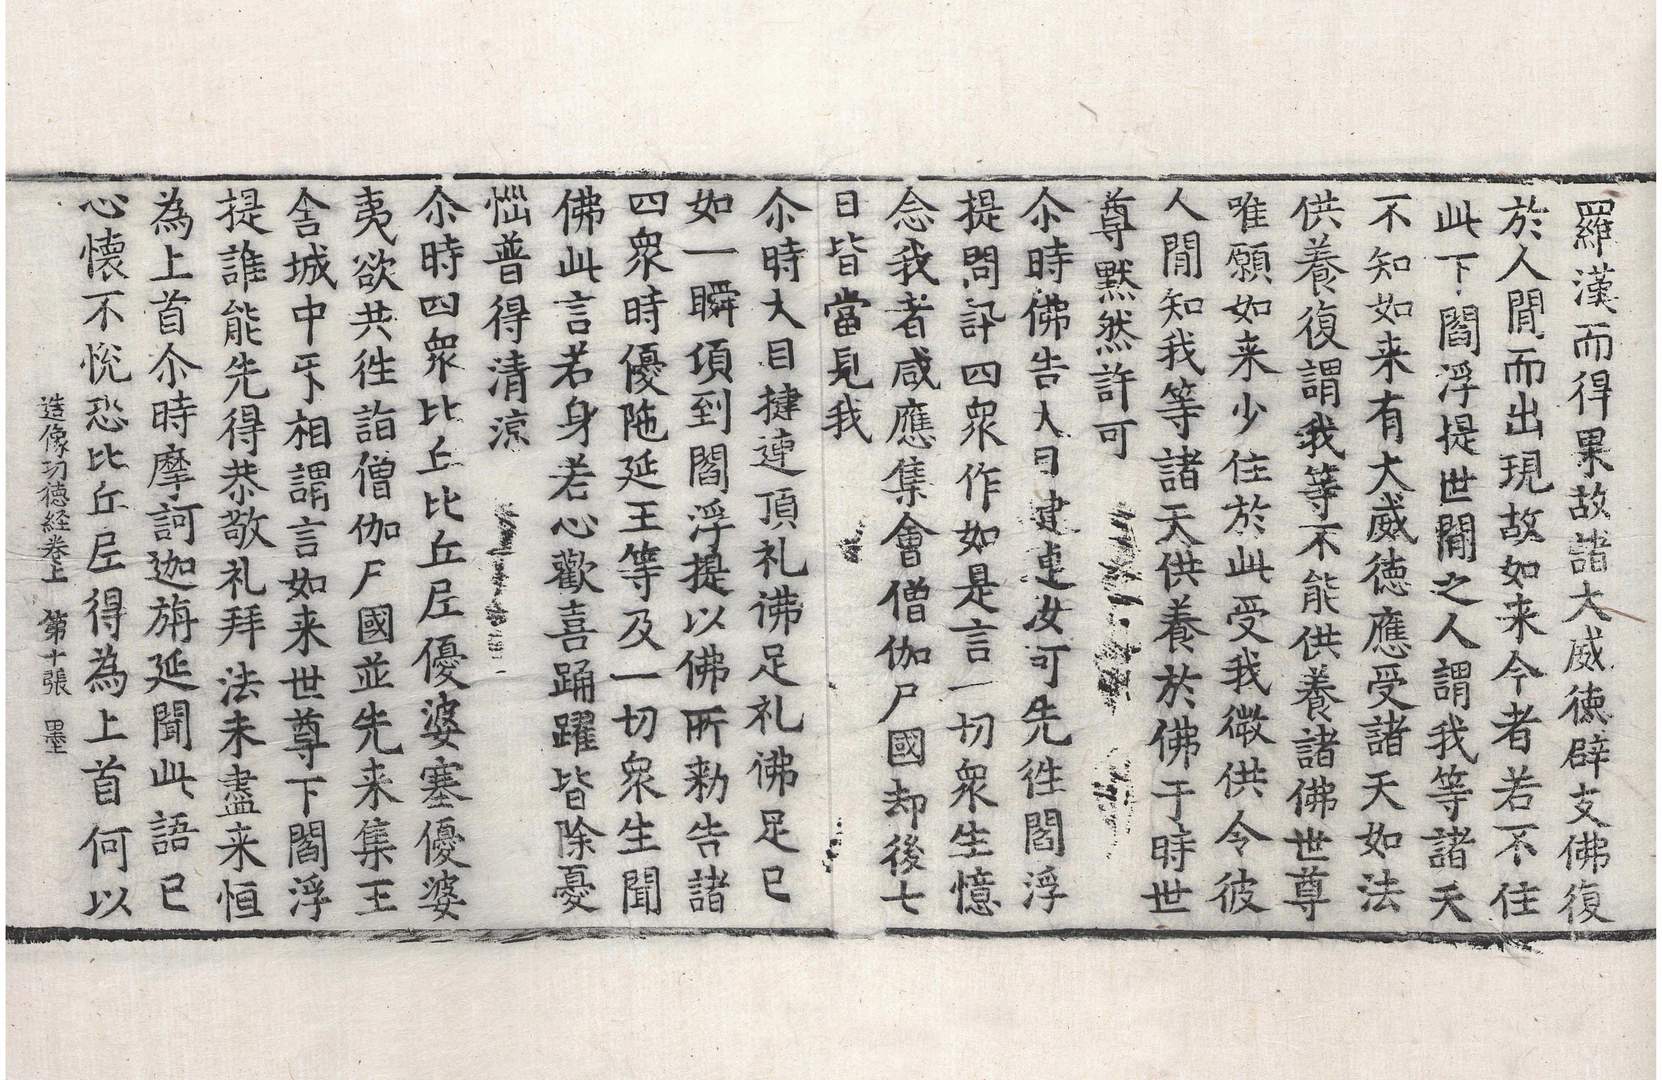 羅漢而得果故諸大威徳辟支佛復
於人閒而出現故如来今者若不住
此下閻浮提世閒之人謂我等諸天
不知如来有大威徳應受諸天如法
供養復謂我等不能供養諸佛世尊
唯願如来少住於此受我微供令彼
人閒知我等諸天供養於佛于時世
尊默然許可
尒時佛告大目揵連汝可先徃閻浮
提問訊四衆作如是言一切衆生憶
念我者咸應集會僧伽尸國却後七
日皆當見我
尒時大目揵連頂礼佛足礼佛足已
如一瞬頃到閻浮提以佛所勑告諸
四衆時優陁延王等及一切衆生聞
佛此言若身若心歡喜踊躍皆除憂
惱普得清涼
尒時四衆比丘比丘尼優婆塞優婆
夷欲共徃詣僧伽尸國並先来集王
舎城中㸦相謂言如来世尊下閻浮
提誰能先得恭敬礼拜法未盡来恒
為上首尒時摩訶迦旃延聞此語已
心懐不恱恐比丘尼得為上首何以
造像功徳経卷上　第十張　墨